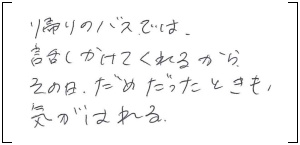 帰りのバスでは、
話しかけてくれるから
その日、だめだったときも、
気がはれる。